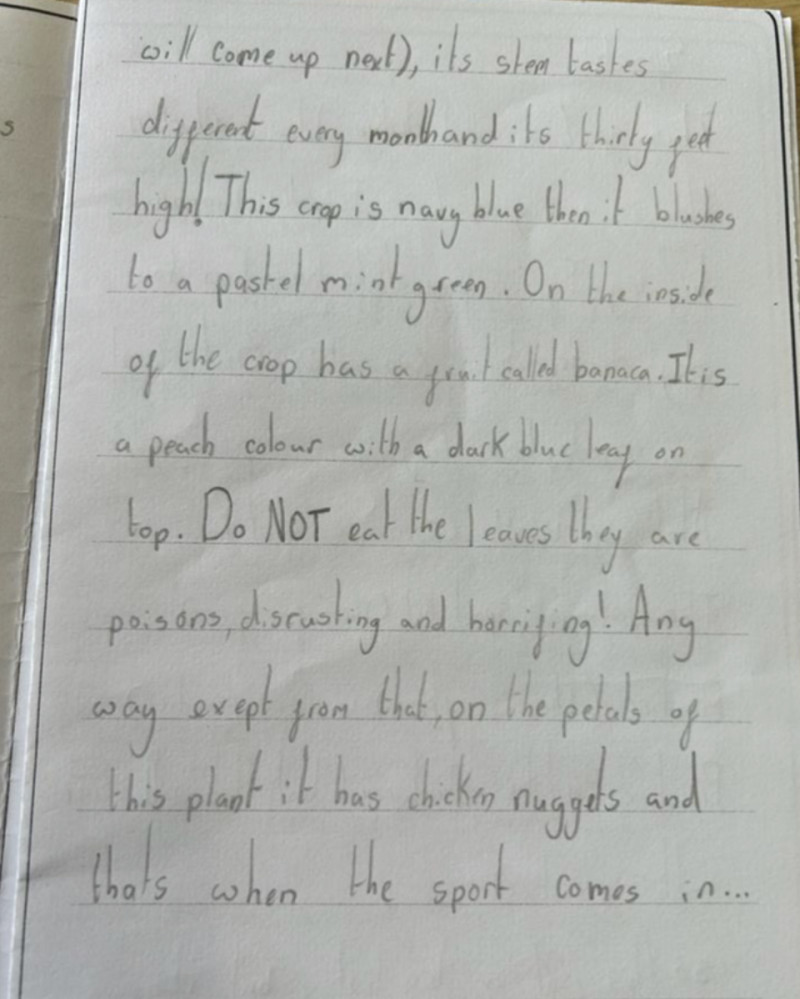 s
will come up next), its stem tastes
different every month and its thirty feet
high! This crop is navy blue then it blushes
to a pastel mint green. On the inside
of the crop has a fruit called banaca. It is
a peach colour with a dark blue leaf on
top. Do NOT eat the leaves they are
poisons, discusting and horrifing! Any
way exept from that, on the petals of
this plant it has chicken nuggets and
thats when the sport comes in...